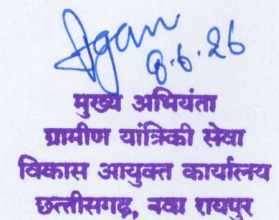 8.6.26
मुख्य अभियंता
ग्रामीण यांत्रिकी सेवा
विकास आयुक्त कार्यालय
छत्तीसगढ़, नवा रायपुर